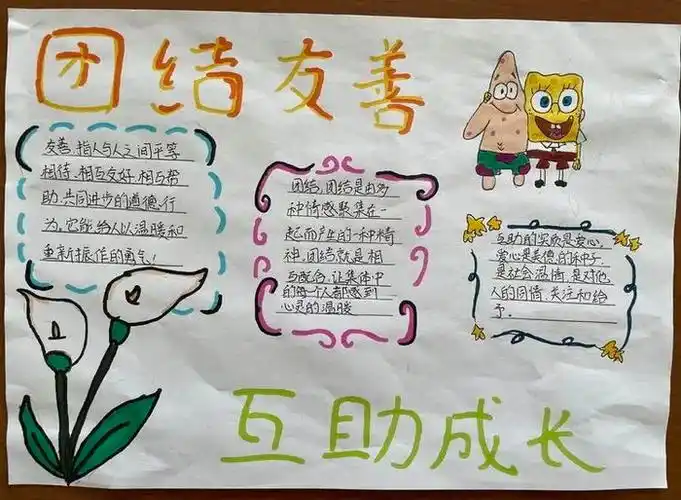 团结友善
友善,指人与人之间平等
相待、相互友好、相互帮
助、共同进步的道德行
为,它能给人以温暖和
重新振作的勇气!
团结,团结是由多
种情感聚集在一
起而产生的一种精
神,团结就是相
互配合,让集体中
的每个人都感到
心灵的温暖
互助的实质是爱心,
爱心是美德的种子,
是社会温情,是对他
人的同情、关注和给
予.
互助成长